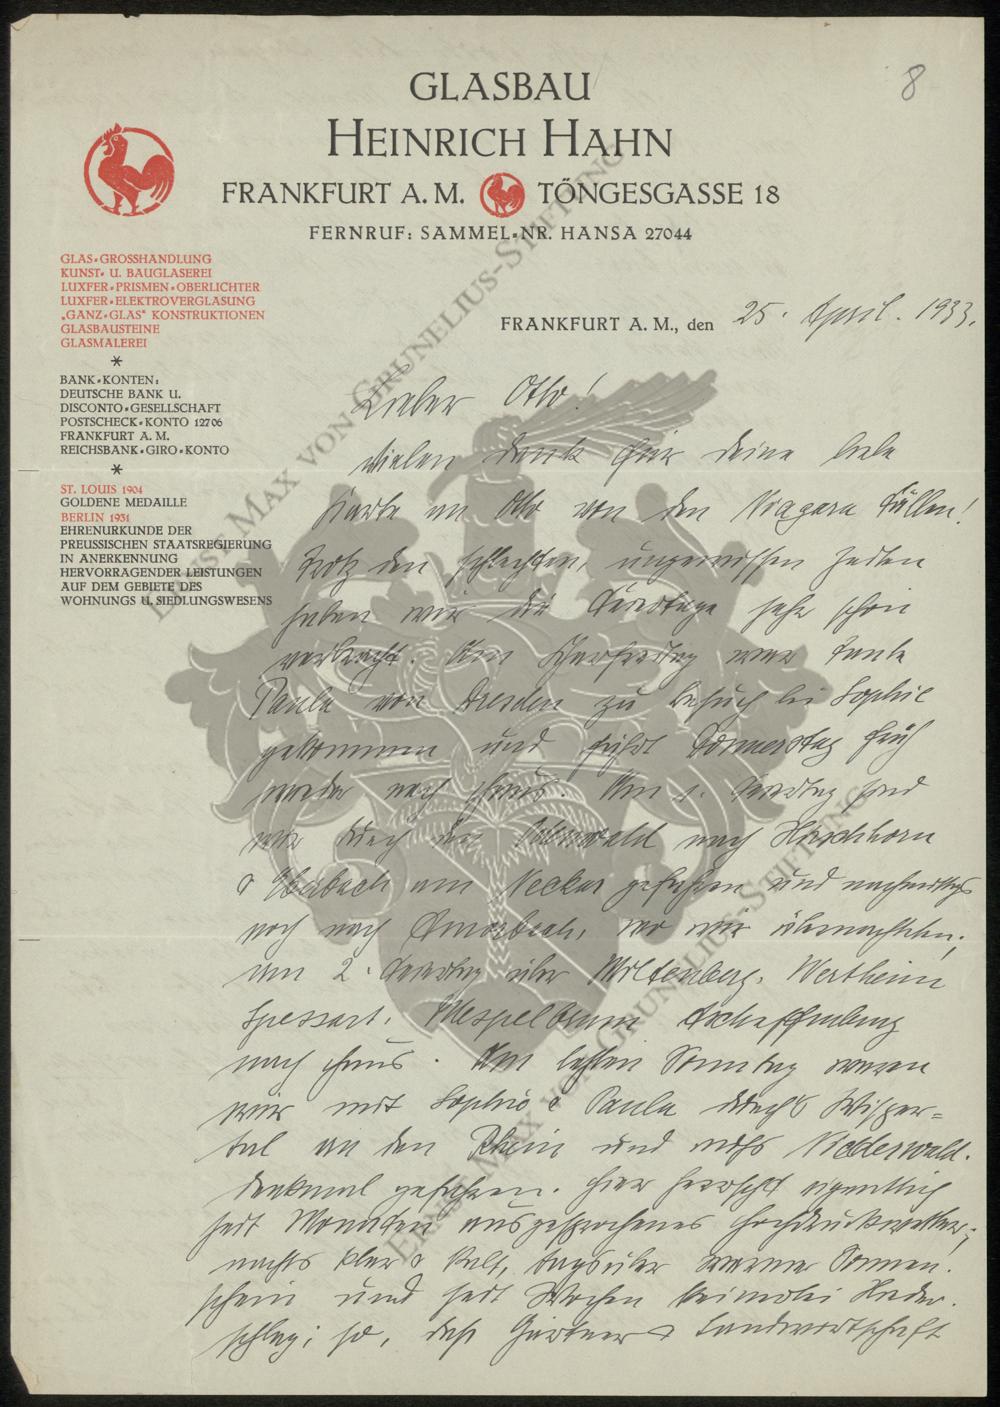 8
GLASBAU
HEINRICH HAHN
FRANKFURT A. M. TÖNGESGASSE 18
FERNRUF: SAMMEL-NR. HANSA 27044
GLAS-GROSSHANDLUNG
KUNST- U. BAUGLASEREI
LUXFER-PRISMEN-OBERLICHTER
LUXFER-ELEKTROVERGLASUNG
„GANZ-GLAS" KONSTRUKTIONEN
GLASBAUSTEINE
GLASMALEREI
*
BANK-KONTEN:
DEUTSCHE BANK U.
DISCONTO-GESELLSCHAFT
POSTSCHECK-KONTO 12706
FRANKFURT A. M.
REICHSBANK-GIRO-KONTO
*
ST. LOUIS 1904
GOLDENE MEDAILLE
BERLIN 1931
EHRENURKUNDE DER
PREUSSISCHEN STAATSREGIERUNG
IN ANERKENNUNG
HERVORRAGENDER LEISTUNGEN
AUF DEM GEBIETE DES
WOHNUNGS U. SIEDLUNGSWESENS
FRANKFURT A. M., den 25. April. 1933.
Lieber Otto!
Vielen Dank für deine liebe
Karte an Otto von den Niagara Fällen!
Trotz den schlechten, ungewissen Zeiten
haben wir die Feiertage sehr schön
verbracht. Am Karfreitag war Tante
Paula von Dresden zu Besuch bei Sophie
gekommen und fährt Donnerstag früh
wieder nach Haus. Am 1. Feiertag sind
wir durch den Odenwald nach Hirschhorn
& Eberbach am Neckar gefahren und nachmittags
noch nach Amorbach, wo wir übernachteten;
am 2. Feiertag über Miltenberg, Wertheim
Spessart, Mespelbrunn Aschaffenburg
nach Haus. Am letzten Sonntag waren
wir mit Sophie & Paula durch's Wisper=
tal an den Rhein und aufs Niederwald.
denkmal gefahren. Hier herrscht eigentlich
seit Monaten ausgesprochenes Hochdruckwetter;
nachts klar & kalt, tagsüber warmer Sonnen.
schein und seit Wochen keinerlei Nieder.
schlag; so, daß Gärtner & Landwirtschaft
ERNST MAX VON GRUNELIUS-STIFTUNG
ERNST MAX VON GRUNELIUS-STIFTUNG